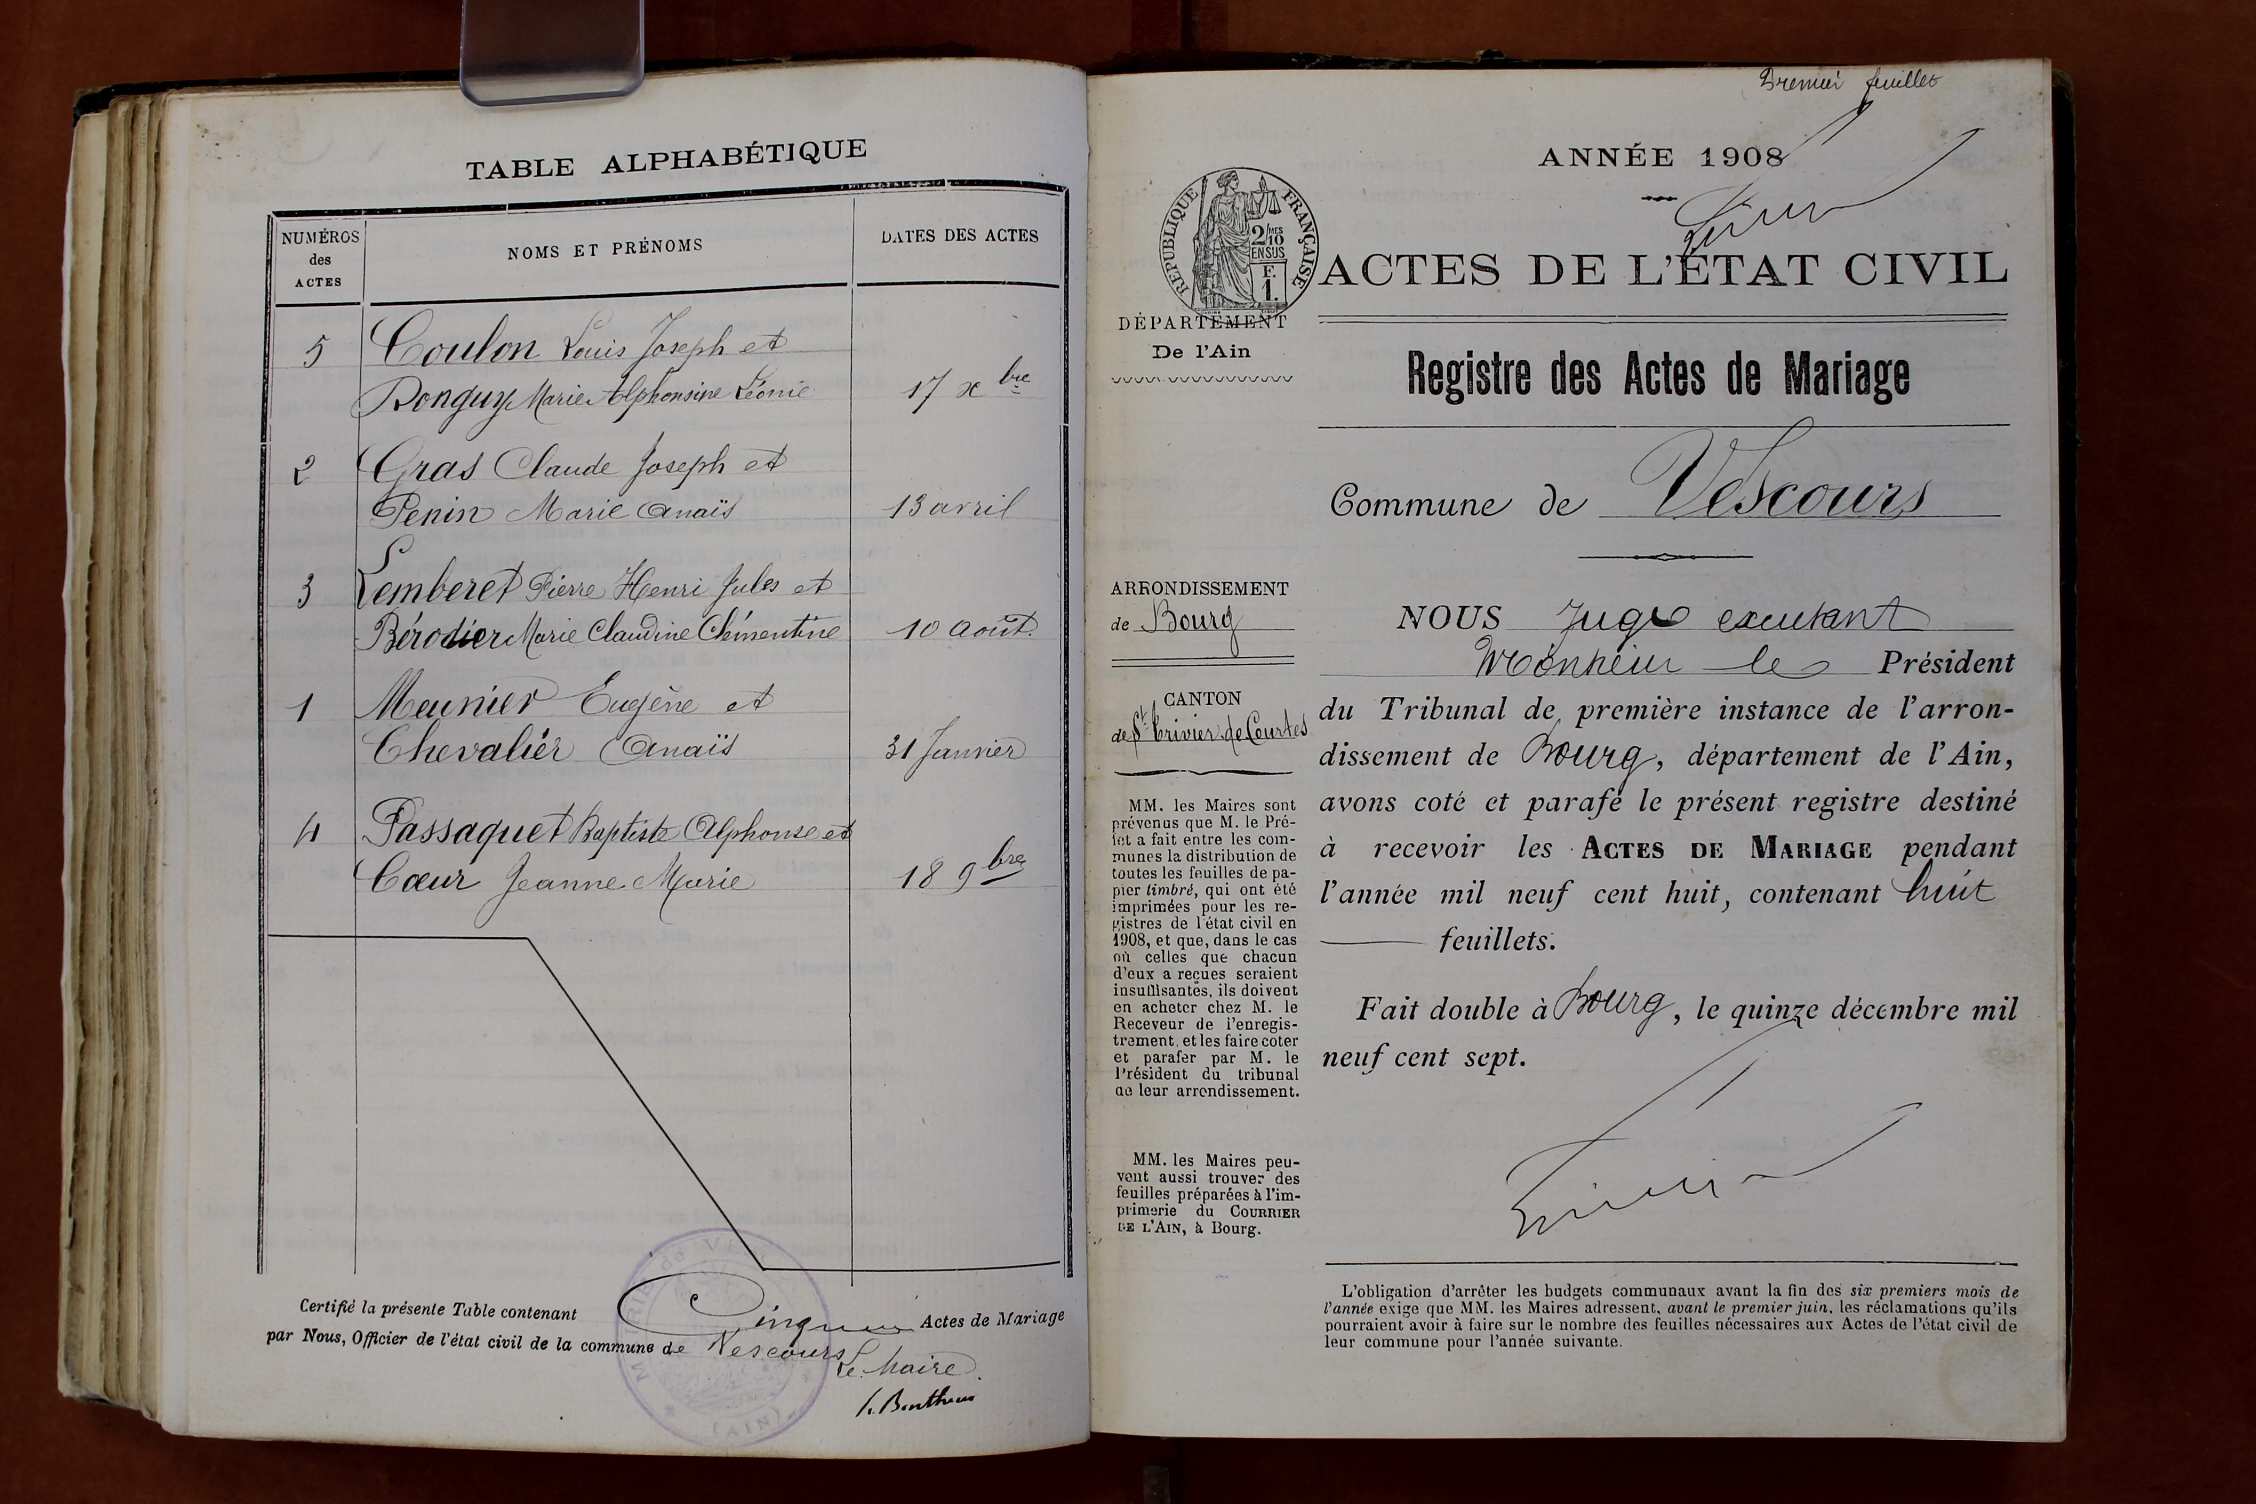 TABLE ALPHABÉTIQUE
NUMÉROS
des
ACTES
NOMS ET PRÉNOMS
DATES DES ACTES
5 Coulon Louis Joseph et
Donguy Marie Alphonsine Léonie 17 xbre
2 Gras Claude Joseph et
Penin Marie Anaïs 13 avril
3 Lemberet Pierre Henri Jules et
Bérodier Marie Claudine Clémentine 10 août.
1 Meunier Eugène et
Chevalier Anaïs 31 Janvier
4 Passaquet Baptiste Alphonse et
Cœur Jeanne Marie 18 9bre
Certifié la présente Table contenant Cinq Actes de Mariage
par Nous, Officier de l'état civil de la commune de Vescours
Le Maire.
(AIN)
Premier feuillet
ANNÉE 1908
RÉPUBLIQUE FRANÇAISE
2/10 MES
EN SUS
F.
1.
ACTES DE L'ÉTAT CIVIL
DÉPARTEMENT
De l'Ain
Registre des Actes de Mariage
Commune de Vescours
ARRONDISSEMENT
de Bourg
CANTON
de St Trivier de Courtes
MM. les Maires sont
prévenus que M. le Pré-
fet a fait entre les com-
munes la distribution de
toutes les feuilles de pa-
pier timbré, qui ont été
imprimées pour les re-
gistres de l'état civil en
1908, et que, dans le cas
où celles que chacun
d'eux a reçues seraient
insuffisantes, ils doivent
en acheter chez M. le
Receveur de l'enregis-
trement, et les faire coter
et parafer par M. le
Président du tribunal
de leur arrondissement.
MM. les Maires peu-
vent aussi trouver des
feuilles préparées à l'im-
primerie du COURRIER
DE L'AIN, à Bourg.
NOUS Juge excusant
Monsieur le Président
du Tribunal de première instance de l'arron-
dissement de Bourg, département de l'Ain,
avons coté et parafé le présent registre destiné
à recevoir les ACTES DE MARIAGE pendant
l'année mil neuf cent huit, contenant huit
feuillets.
Fait double à Bourg, le quinze décembre mil
neuf cent sept.
L'obligation d'arrêter les budgets communaux avant la fin des six premiers mois de
l'année exige que MM. les Maires adressent, avant le premier juin, les réclamations qu'ils
pourraient avoir à faire sur le nombre des feuilles nécessaires aux Actes de l'état civil de
leur commune pour l'année suivante.